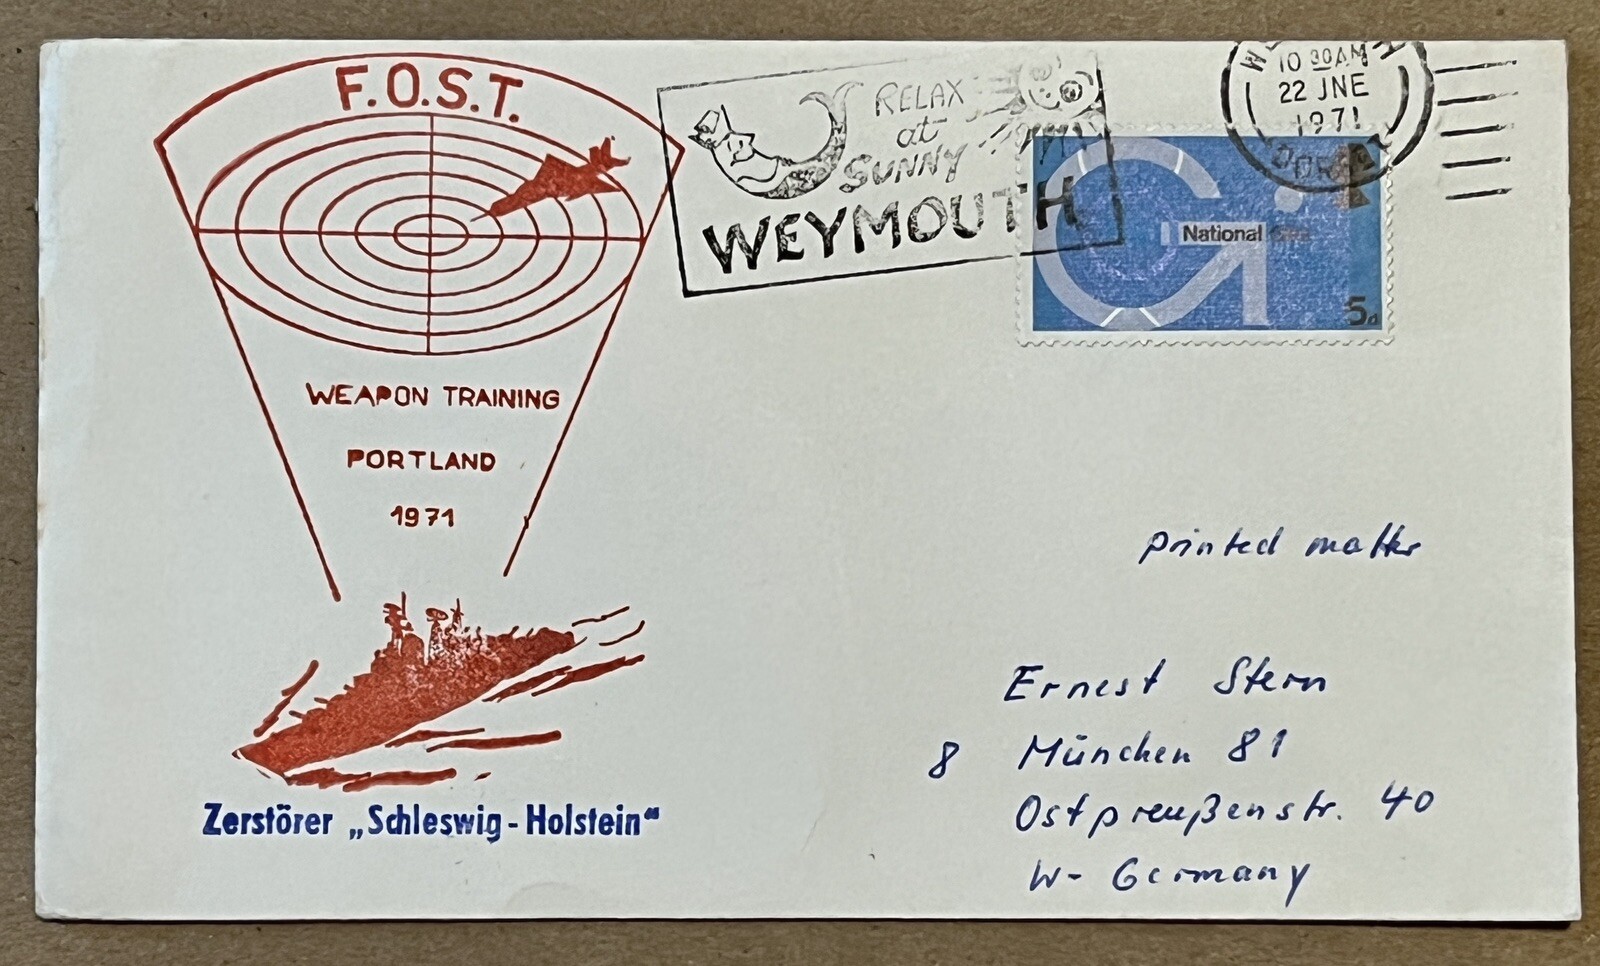 F.O.S.T.
WEAPON TRAINING
PORTLAND
1971
Zerstörer „Schleswig-Holstein“
RELAX
at
SUNNY
WEYMOUTH
10 30 AM
22 JNE
1971
National
5d
printed matter
Ernest Stern
8 München 81
Ostpreußenstr. 40
W-Germany